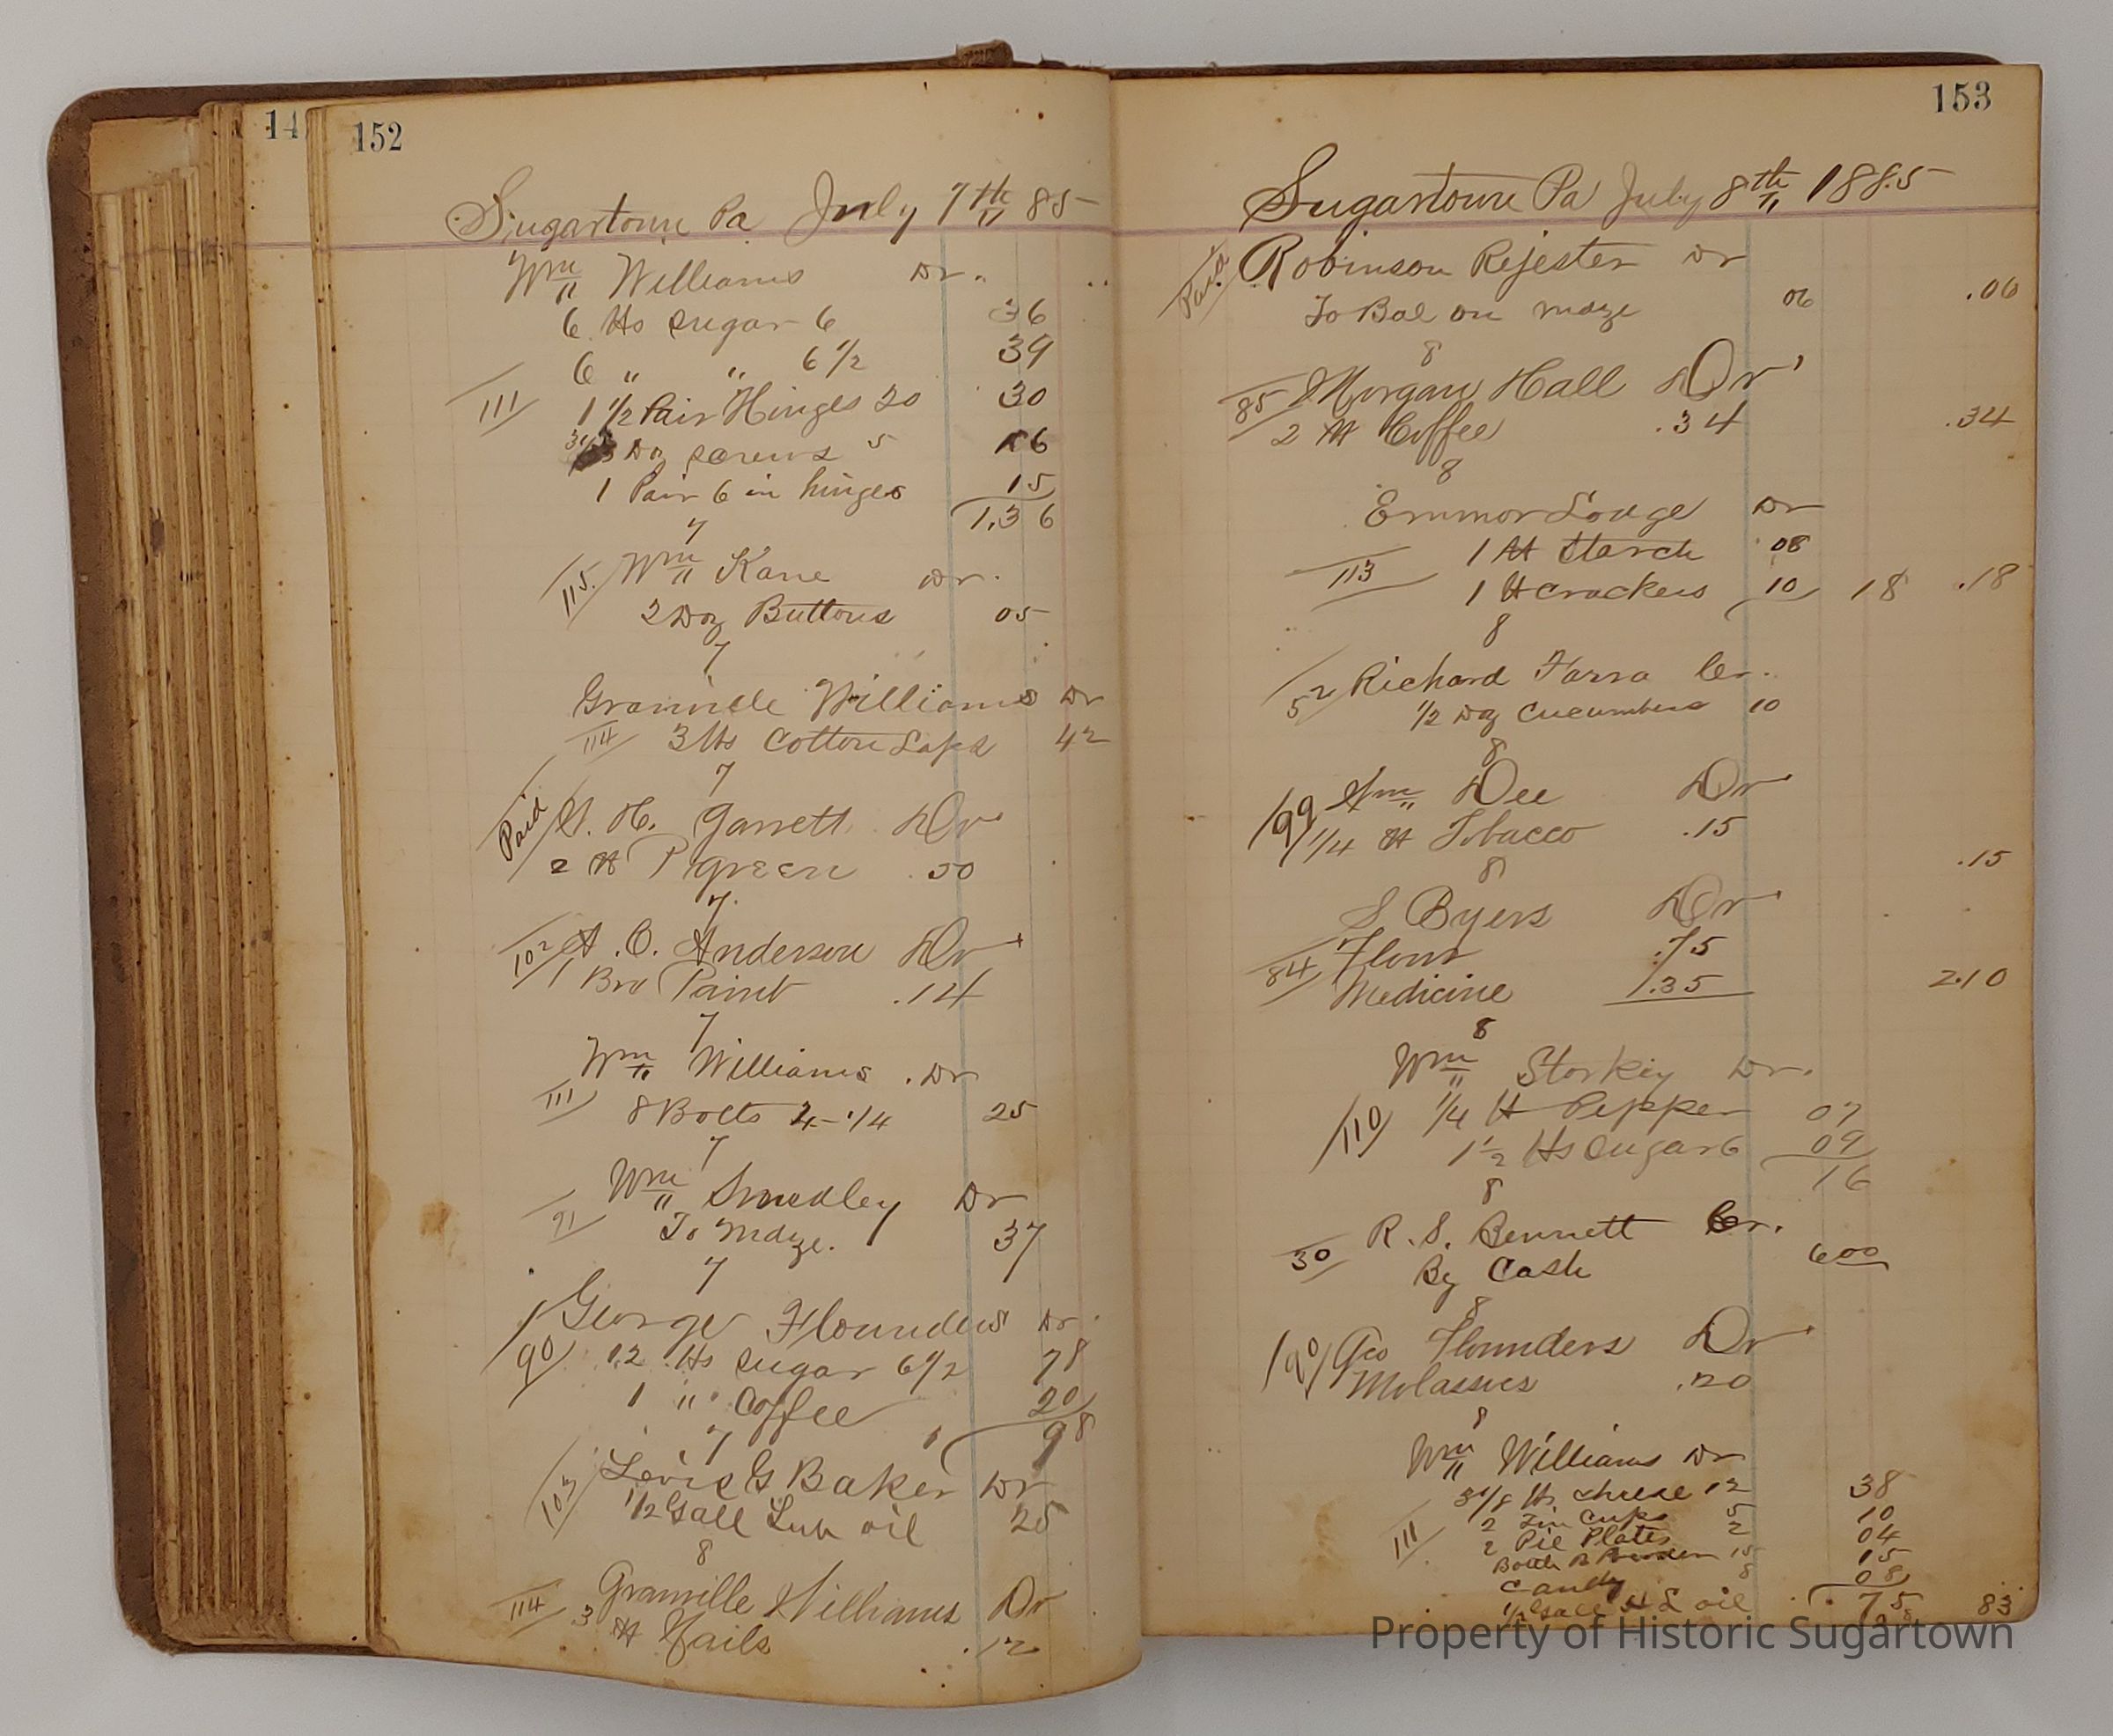 14
152
Sugartown Pa July 7th 85
Wm Williams Dr.
6 lbs Sugar 6 36
6 " " 6 1/2 39
111 1 1/2 Pair Hinges 20 30
Doz screws 5 16
1 Pair 6 in hinges 15
1,36
7
115. Wm Kane Dr.
2 Doz Buttons 05
7
Granville Williams Dr
114 3 lbs Cotton Laps 42
7
Paid H. Garrett Dr
2 lb P green .50
7.
102 A. O. Anderson Dr
1 Bro Paint .14
7
Wm Williams . Dr
111 8 Bolts 1/4 25
7
Wm Smedley Dr
91 To Mdze. 37
7
George Flounders Dr.
90 12 lbs sugar 6 1/2 78
1 " Coffee 20
7 98
Lewis G Baker Dr
103 1/2 Gall Lub oil 25
8
Granville Williams Dr
114 3 lb Nails .12
153
Sugartown Pa July 8th 1885
Paid Robinson Rejester Dr
To Bal on mdze 06 .06
8
85 Morgan Hall Dr
2 lb Coffee .34 .34
8
Emmor Lodge Dr
1 lb Starch 08
113 1 lb Crackers 10 18 .18
8
52 Richard Farra Cr.
1/2 Doz Cucumbers 10
8
99 Wm Dee Dr
1/4 lb Tobacco .15
.15
8
S Byers Dr
84 Flour .75
Medicine 1.35 2.10
8
Wm Storkey Dr.
110 1/4 lb Pepper 07
1 1/2 lbs Sugar 6 09
16
8
30 R. S. Bennett Cr.
By Cash 600
8
90 Geo Flounders Dr
Molasses .20
8
Wm Williams Dr
3 1/8 lb cheese 12 38
2 Tin Cups 5 10
111 2 Pie Plates 2 04
Bottle B Powder 15 15
Candy 8 08
1/2 Gall H L oil 75 83
Property of Historic Sugartown